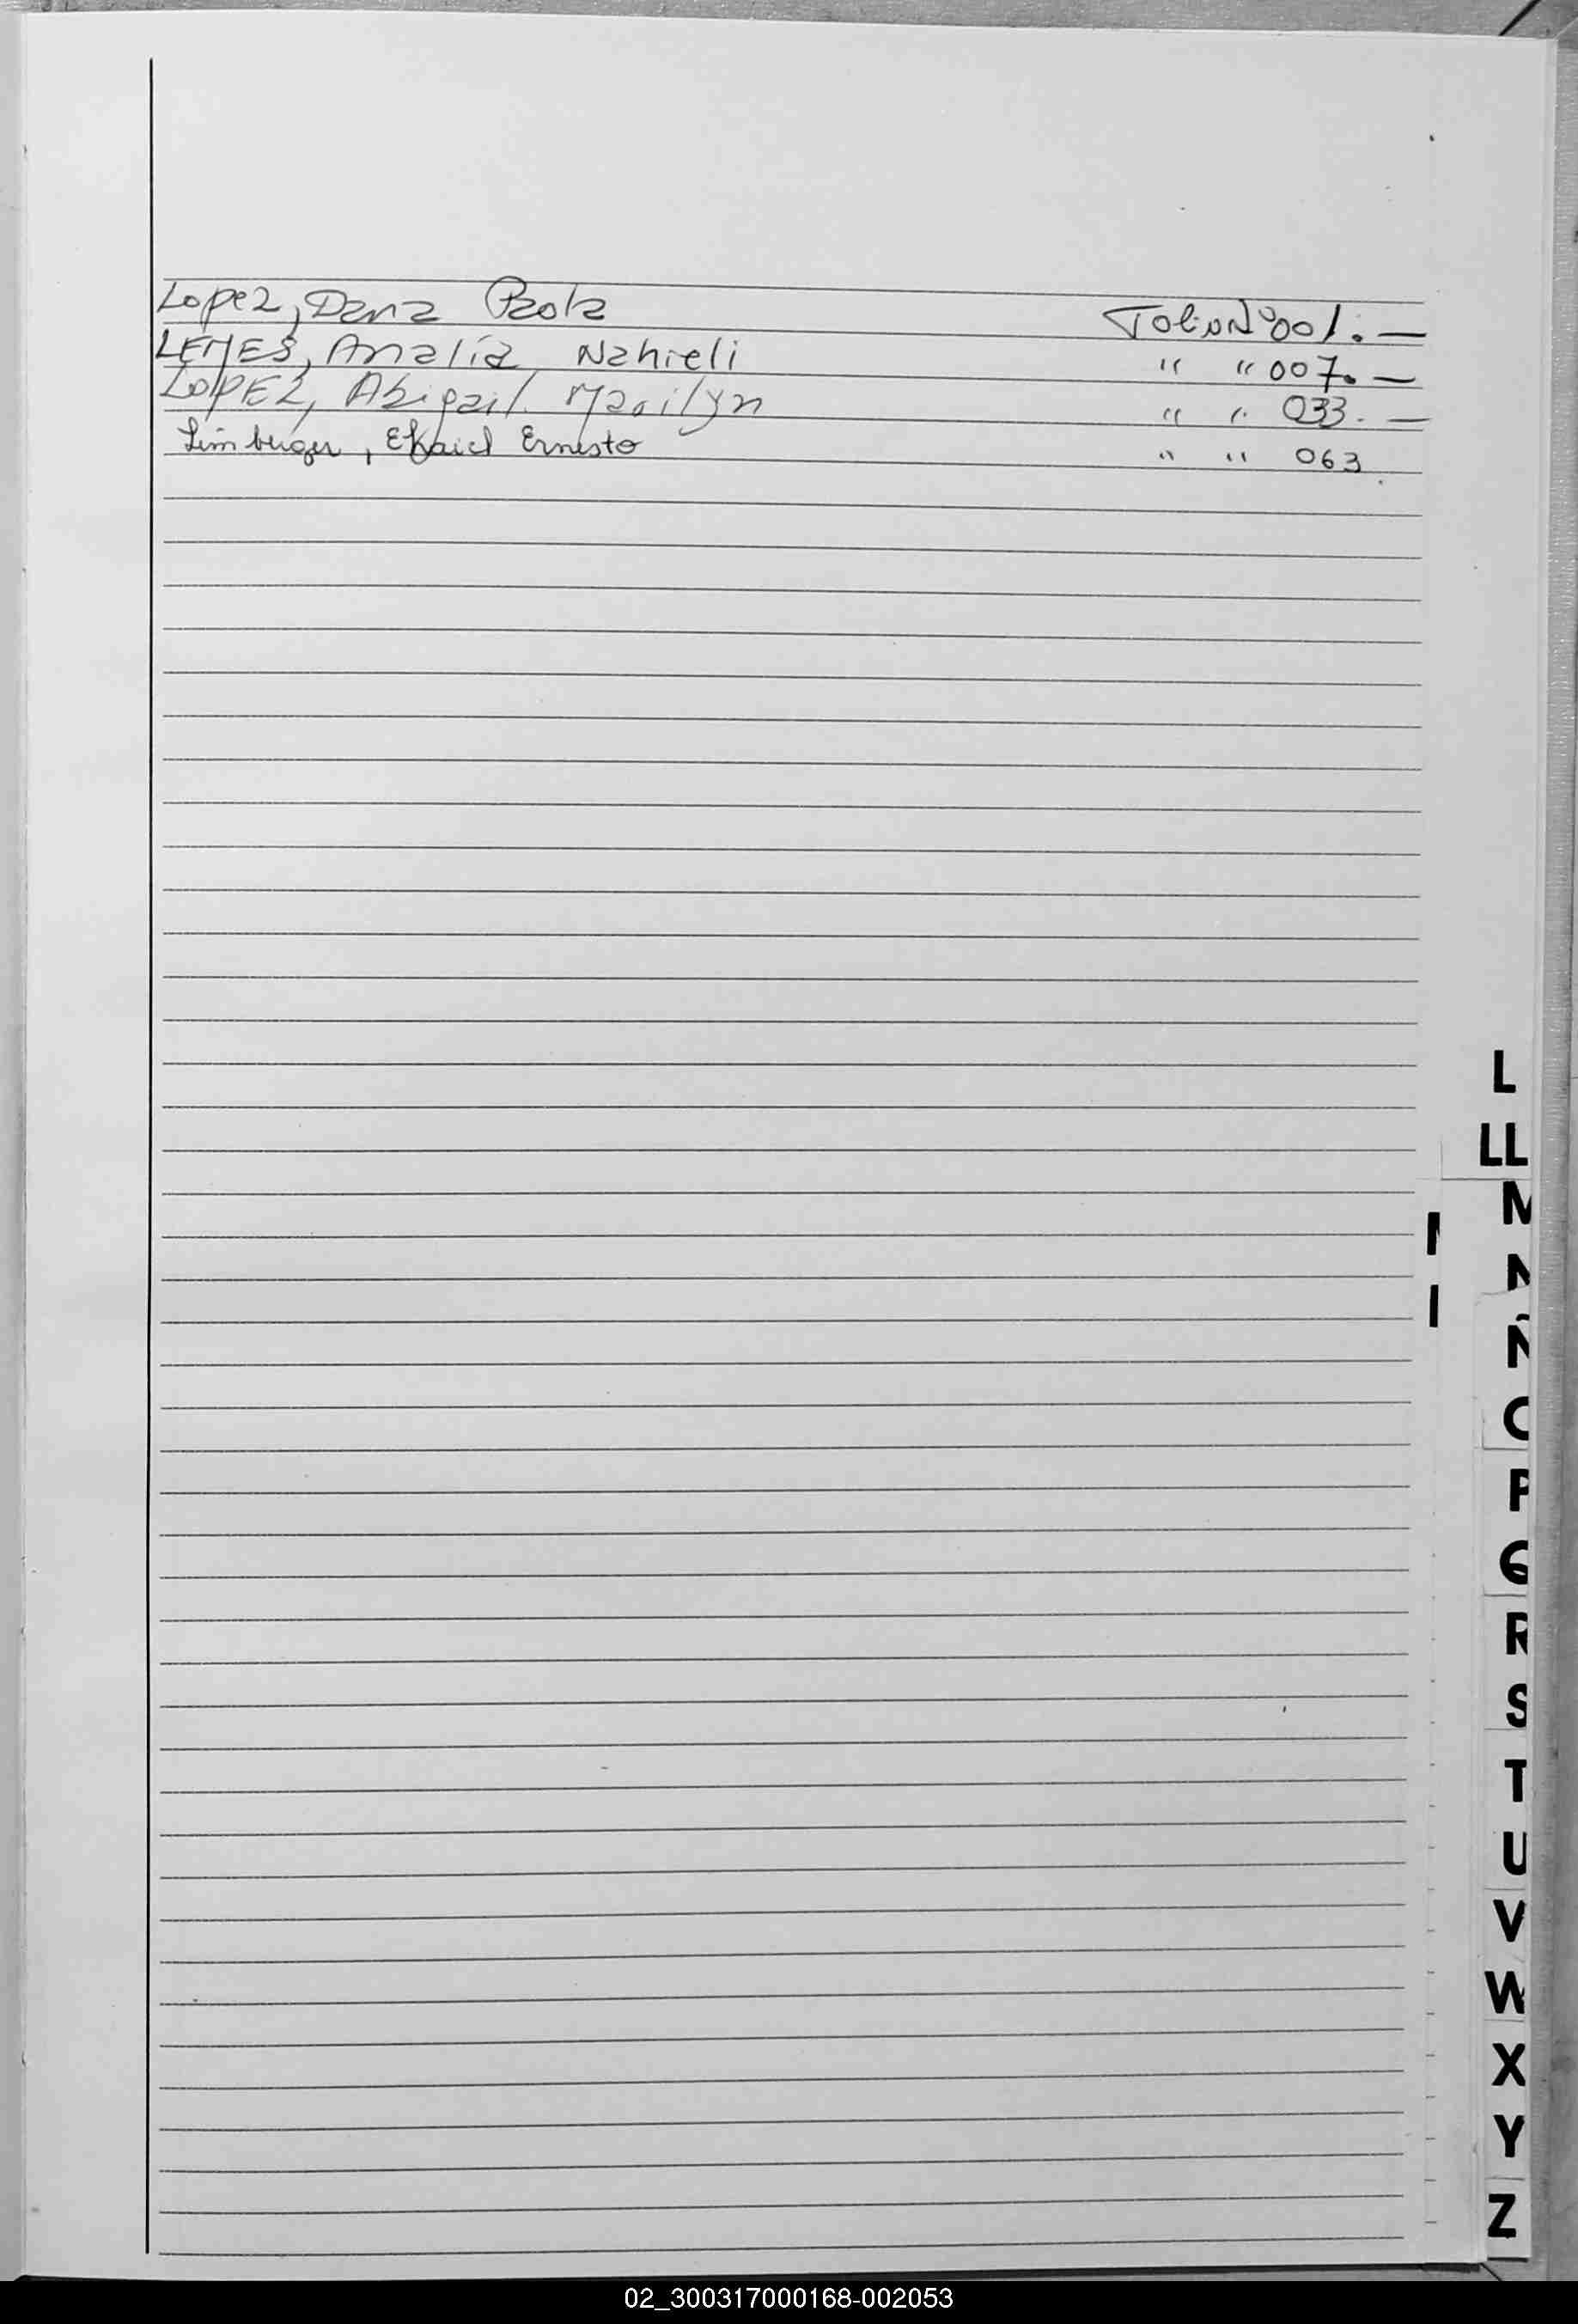 Lopez, Dana Paola Folio Nº 001.—
LEMES, Analía Nahieli " " 007.—
LOPEZ, Abigail Marilyn " " 033.—
Limberger, Ernesto " " 063
L
LL
M
N
Ñ
O
P
Q
R
S
T
U
V
W
X
Y
Z
02_300317000168-002053